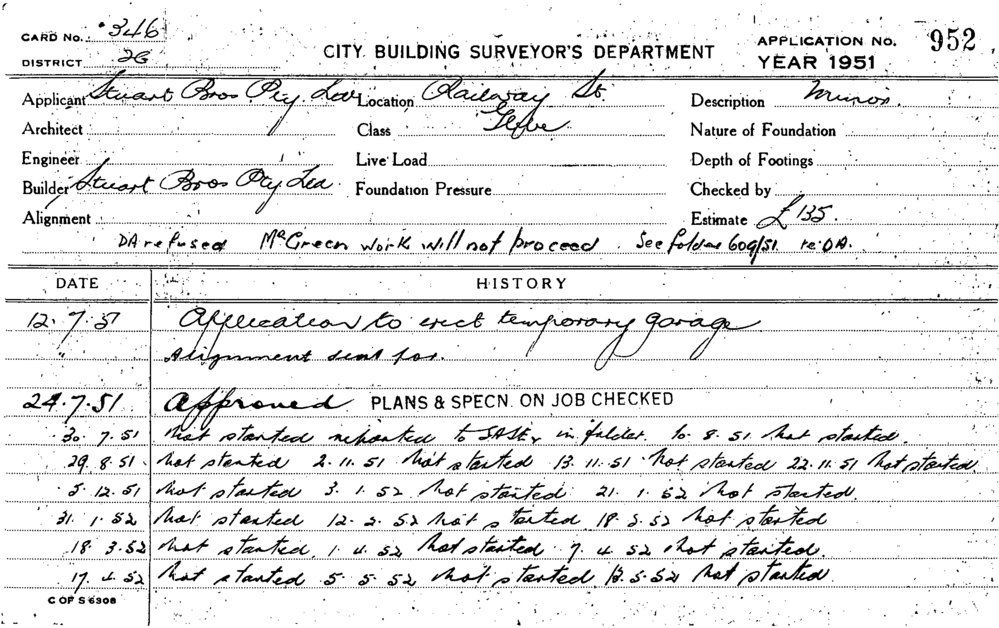 CARD No. 346
DISTRICT 2G
CITY BUILDING SURVEYOR'S DEPARTMENT
APPLICATION No. 952
YEAR 1951
Applicant Stuart Bros Pty. Ltd Location Railway St. Description Minor.
Architect Class Glebe Nature of Foundation
Engineer Live Load Depth of Footings
Builder Stuart Bros Pty Ltd Foundation Pressure Checked by
Alignment Estimate £135.
DA refused Mr Green work will not proceed. See folder 609/51. re DA.
DATE HISTORY
12. 7. 51 Application to erect temporary garage
" Alignment sent for.
24. 7. 51 Approved PLANS & SPECN. ON JOB CHECKED
30. 7. 51 Not started reported to in folder. 10. 8. 51 Not started.
29. 8. 51 Not started 2. 11. 51 Not started 13. 11. 51 Not started 22. 11. 51 Not started
5. 12. 51 Not started 3. 1. 52 Not started 21. 1. 52 Not started.
31. 1. 52 Not started 12. 2. 52 Not started 18. 3. 52 Not started
18. 3. 52 Not started. 1. 4. 52 Not started 7. 4. 52 Not started.
17. 4. 52 Not started 5. 5. 52 Not started 13. 5. 52 Not started.
C OF S 6308